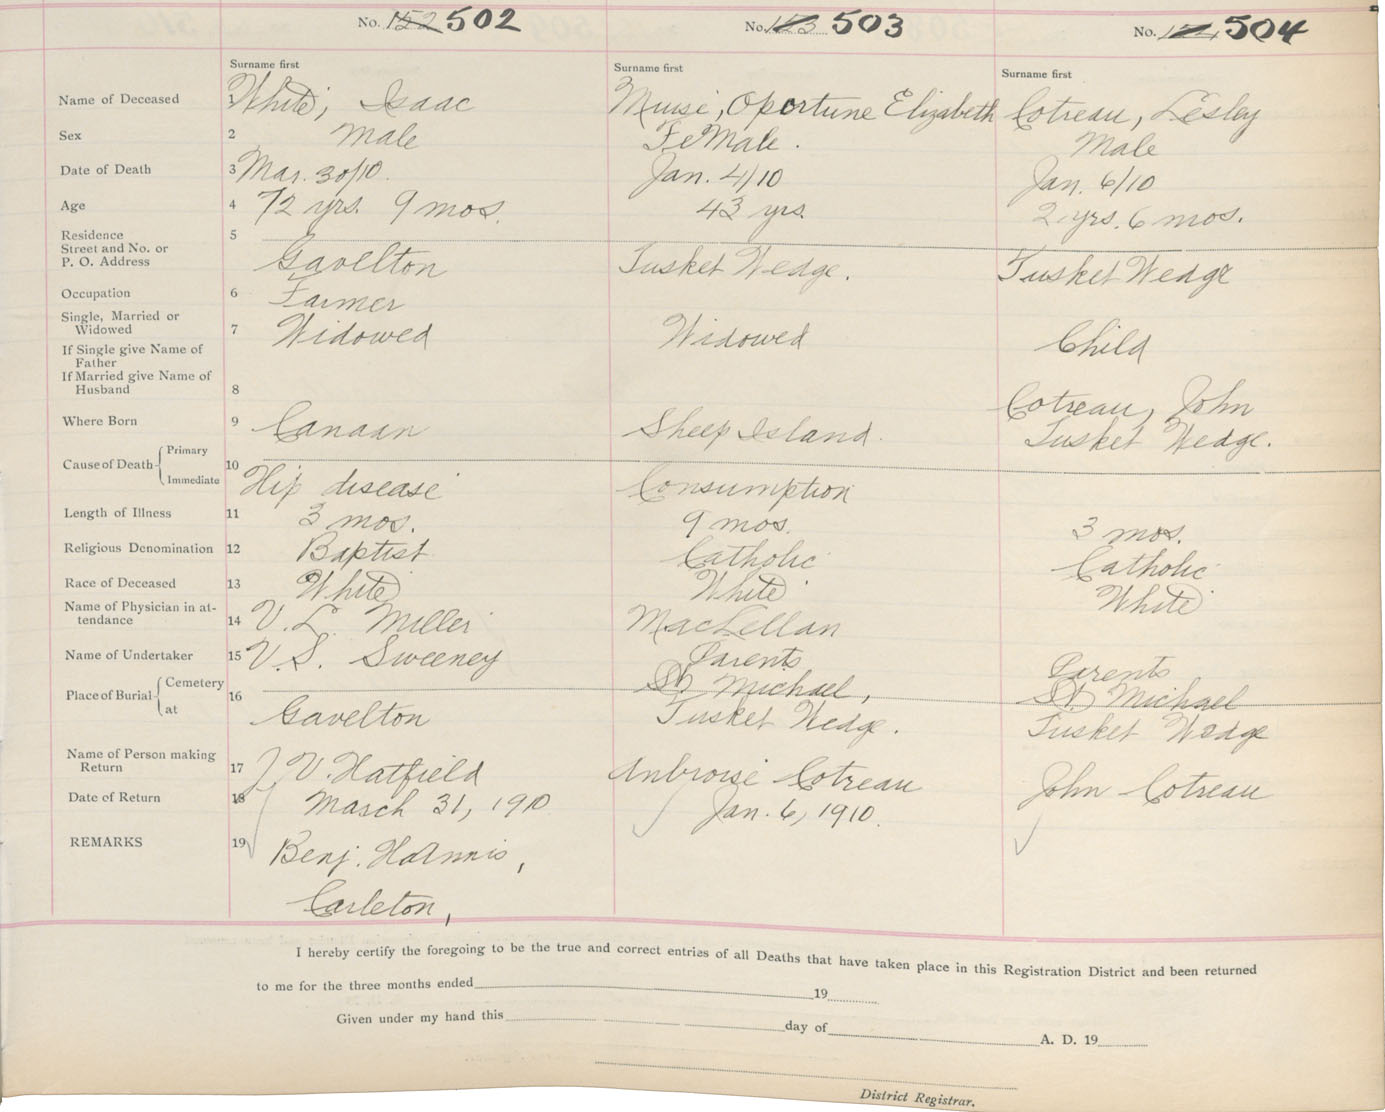 No. 152 502 No. 153 503 No. 154 504
Surname first Surname first Surname first
Name of Deceased White, Isaac Muise, Oportune Elizabeth Cotreau, Lesley
Sex 2 Male FeMale. Male
Date of Death 3 Mar. 30/10. Jan. 4/10 Jan. 6/10
Age 4 72 yrs. 9 mos. 43 yrs. 2 yrs. 6 mos.
Residence 5
Street and No. or
P. O. Address Gavelton Tusket Wedge. Tusket Wedge
Occupation 6 Farmer
Single, Married or
Widowed 7 Widowed Widowed Child
If Single give Name of
Father
If Married give Name of
Husband 8 Cotreau, John
Where Born 9 Canaan Sheep Island. Tusket Wedge.
Cause of Death Primary 10
Immediate Hip disease Consumption
Length of Illness 11 3 mos. 9 mos. 3 mos.
Religious Denomination 12 Baptist Catholic Catholic
Race of Deceased 13 White White White
Name of Physician in at-
tendance 14 V. L. Miller MacLellan
Name of Undertaker 15 V. S. Sweeney Parents Parents
Place of Burial Cemetery 16 St. Michael, St. Michael
at Gavelton Tusket Wedge. Tusket Wedge
Name of Person making
Return 17 J. V. Hatfield Ambroise Cotreau John Cotreau
Date of Return 18 March 31, 1910 Jan. 6, 1910.
REMARKS 19 Benj. Annis,
Carleton,
I hereby certify the foregoing to be the true and correct entries of all Deaths that have taken place in this Registration District and been returned
to me for the three months ended 19
Given under my hand this day of A. D. 19
District Registrar.